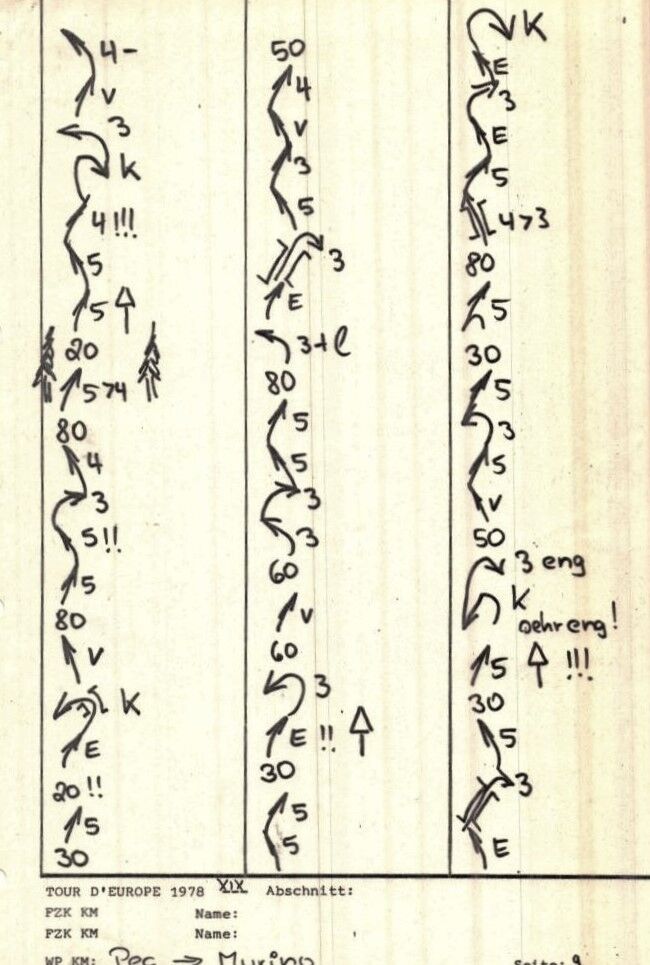 4-
V
3
K
4!!!
5
5
20
5>4
80
4
3
5!!
5
80
V
K
E
20!!
5
30
50
4
V
3
5
3
E
3+l
80
5
5
3
3
60
V
60
3
E !!
30
5
5
K
E
3
E
5
4>3
80
5
30
5
3
5
V
50
3 eng
K
sehr eng!
5 !!!
30
5
3
E
TOUR D'EUROPE 1978 XIX Abschnitt:
FZK KM Name:
FZK KM Name:
WP KM: Pec → Murino Seite: